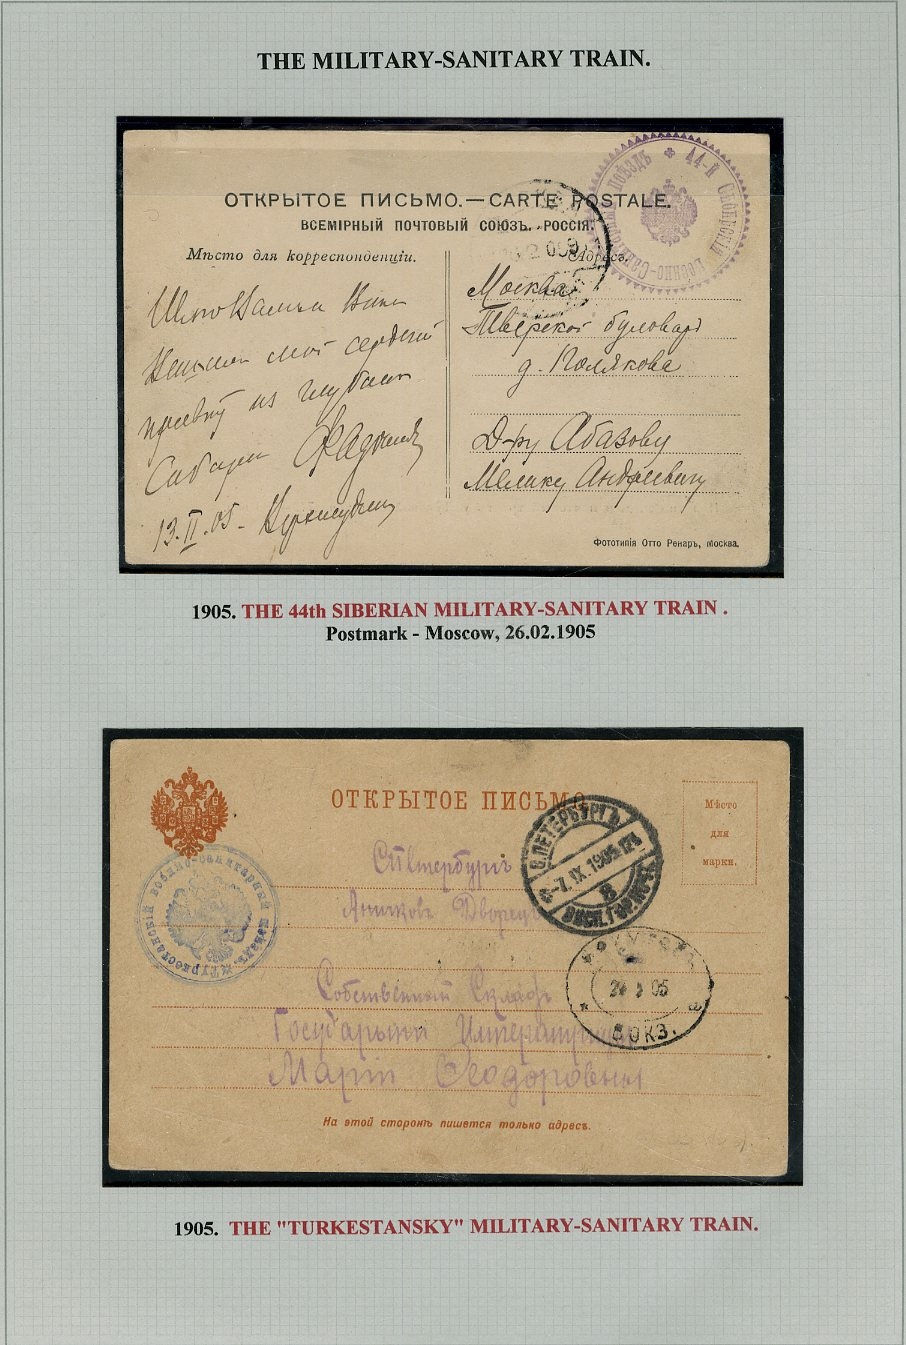 THE MILITARY-SANITARY TRAIN.
44-й Сибирскій Военно-Санитарный поѣздъ
ОТКРЫТОЕ ПИСЬМО.—CARTE POSTALE.
ВСЕМІРНЫЙ ПОЧТОВЫЙ СОЮЗЪ. РОССІЯ.
Мѣсто для корреспонденціи.
Адресъ.
Москва
Тверской бульваръ
д. Полякова
Д-ру Абазову
Мелику Андреевичу
мой сердечный
привѣтъ из глубины
Сибири
13.II.05-
Фототипія Отто Ренаръ, Москва.
1905. THE 44th SIBERIAN MILITARY-SANITARY TRAIN .
Postmark - Moscow, 26.02.1905
ОТКРЫТОЕ ПИСЬМО
Мѣсто
для
марки.
Туркестанскій военно-санитарный поѣздъ
С.ПЕТЕРБУРГЪ
-7.IX.1905
8
ИРКУТСКЪ
ВОКЗ.
С Петербургъ
Аничковъ Дворецъ
Собственный Складъ
Государыни Императрицы
Маріи Ѳеодоровны
На этой сторонѣ пишется только адресъ.
1905. THE "TURKESTANSKY" MILITARY-SANITARY TRAIN.